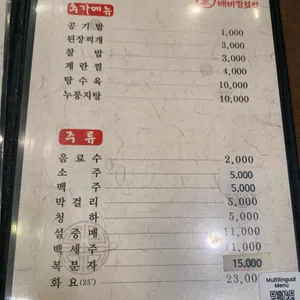 추가메뉴
공기밥 1,000
된장찌개 3,000
찰밥 3,000
계란찜 4,000
탕수육 10,000
누룽지탕 10,000
주류
음료수 2,000
소주 5,000
맥주 5,000
막걸리 5,000
청하 5,000
설중매 11,000
백세주 11,000
복분자 15,000
화요(25˚) 23,000
Multilingual
Menu